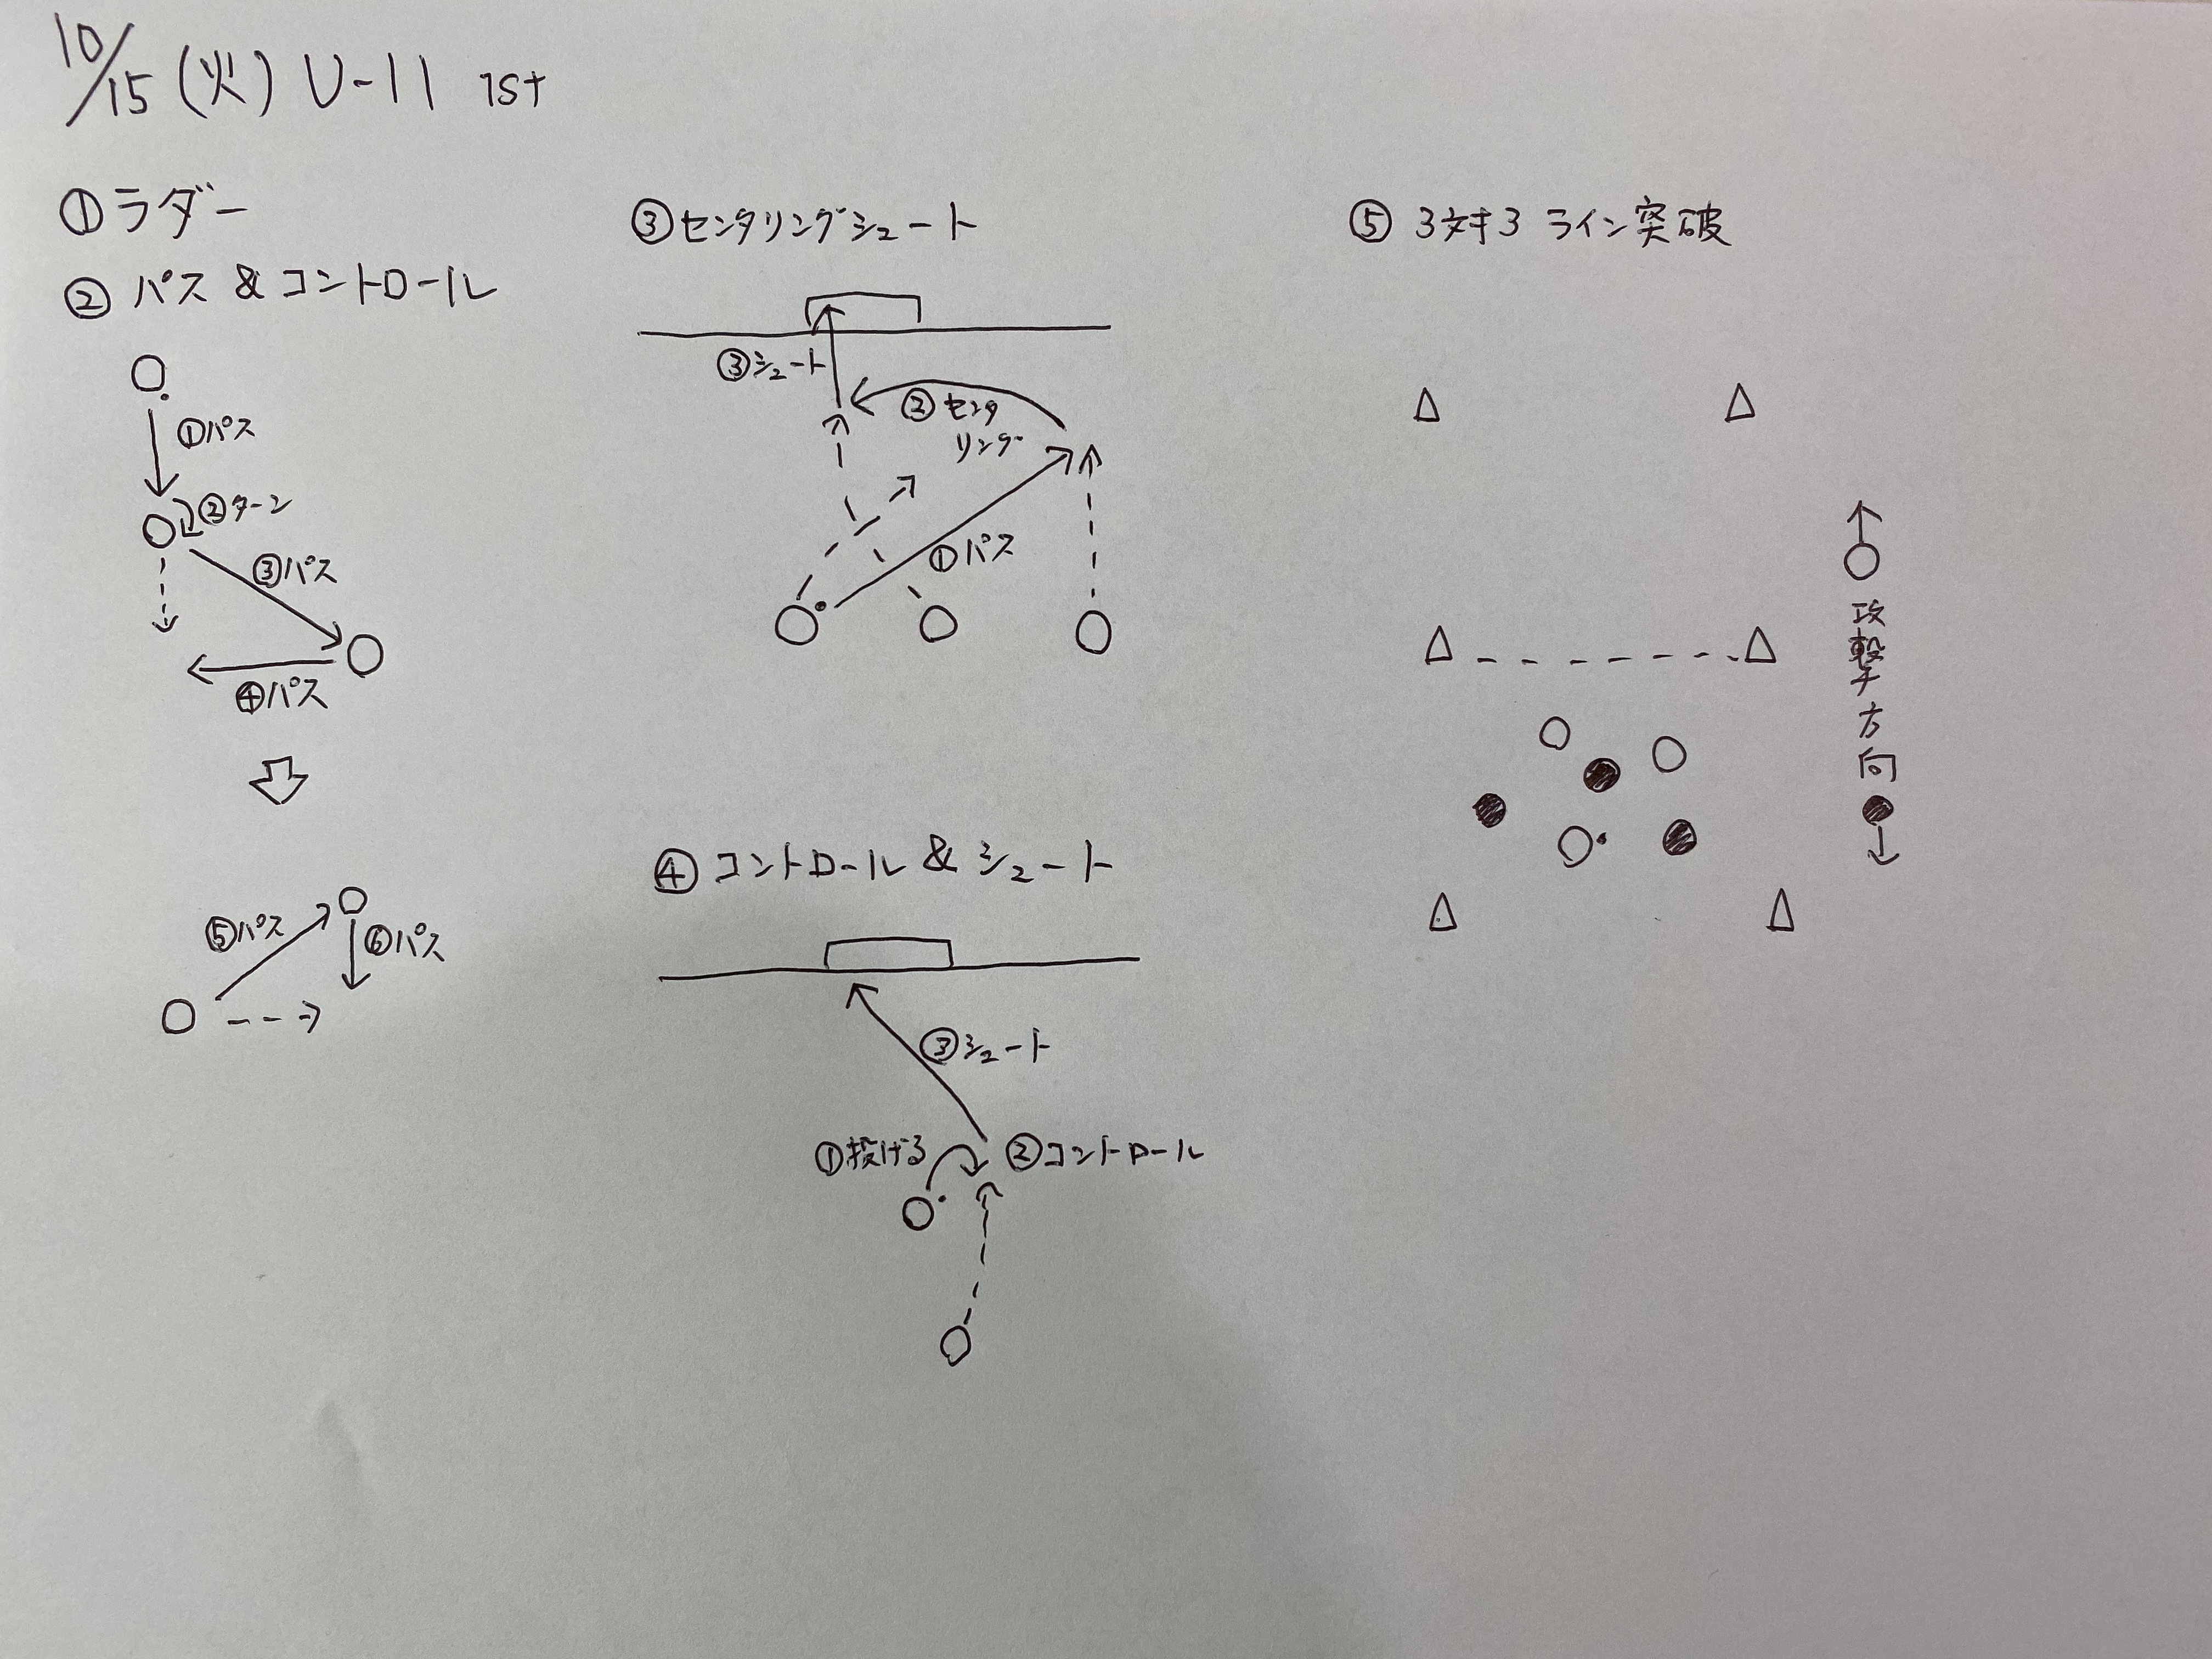 10/15 (火) U-11 1st
①ラダー
②パス&コントロール
①パス
②ターン
③パス
④パス
⑤パス
⑥パス
③センタリングシュート
③シュート
②センタ
リング
①パス
④コントロール&シュート
③シュート
①投げる
②コントロール
⑤ 3対3 ライン突破
攻撃方向